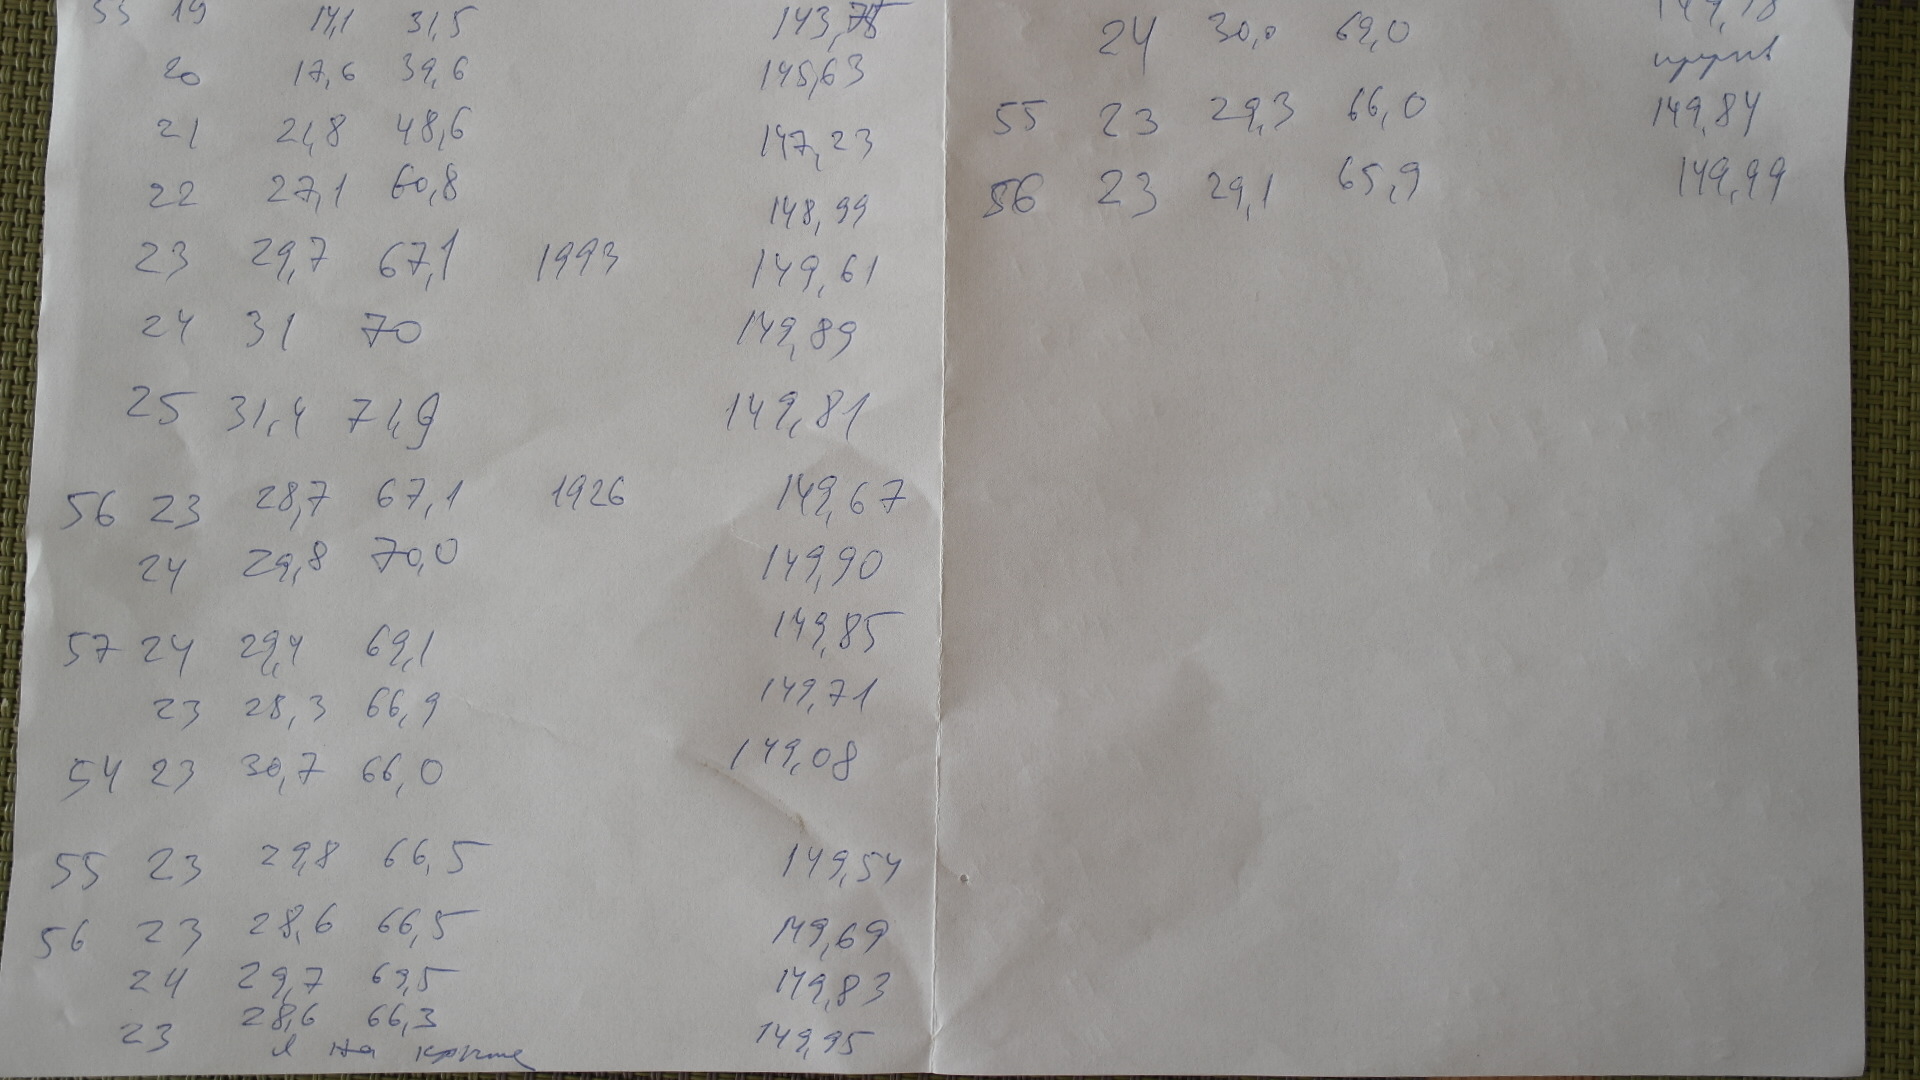 55 19 14,1 31,5 143,75
20 17,6 39,6 145,63
21 21,8 48,6 147,23
22 27,1 60,8 148,99
23 29,7 67,1 1993 149,61
24 31 70 149,89
25 31,4 71,9 149,81
56 23 28,7 67,1 1926 149,67
24 29,8 70,0 149,90
57 24 29,4 69,1 149,85
23 28,3 66,9 149,71
54 23 30,7 66,0 149,08
55 23 29,8 66,5 149,54
56 23 28,6 66,5 149,69
24 29,7 69,5 149,83
23 28,6 66,3 149,95
я на крыше
24 30,0 69,0
55 23 29,3 66,0 149,84
56 23 29,1 65,9 149,99